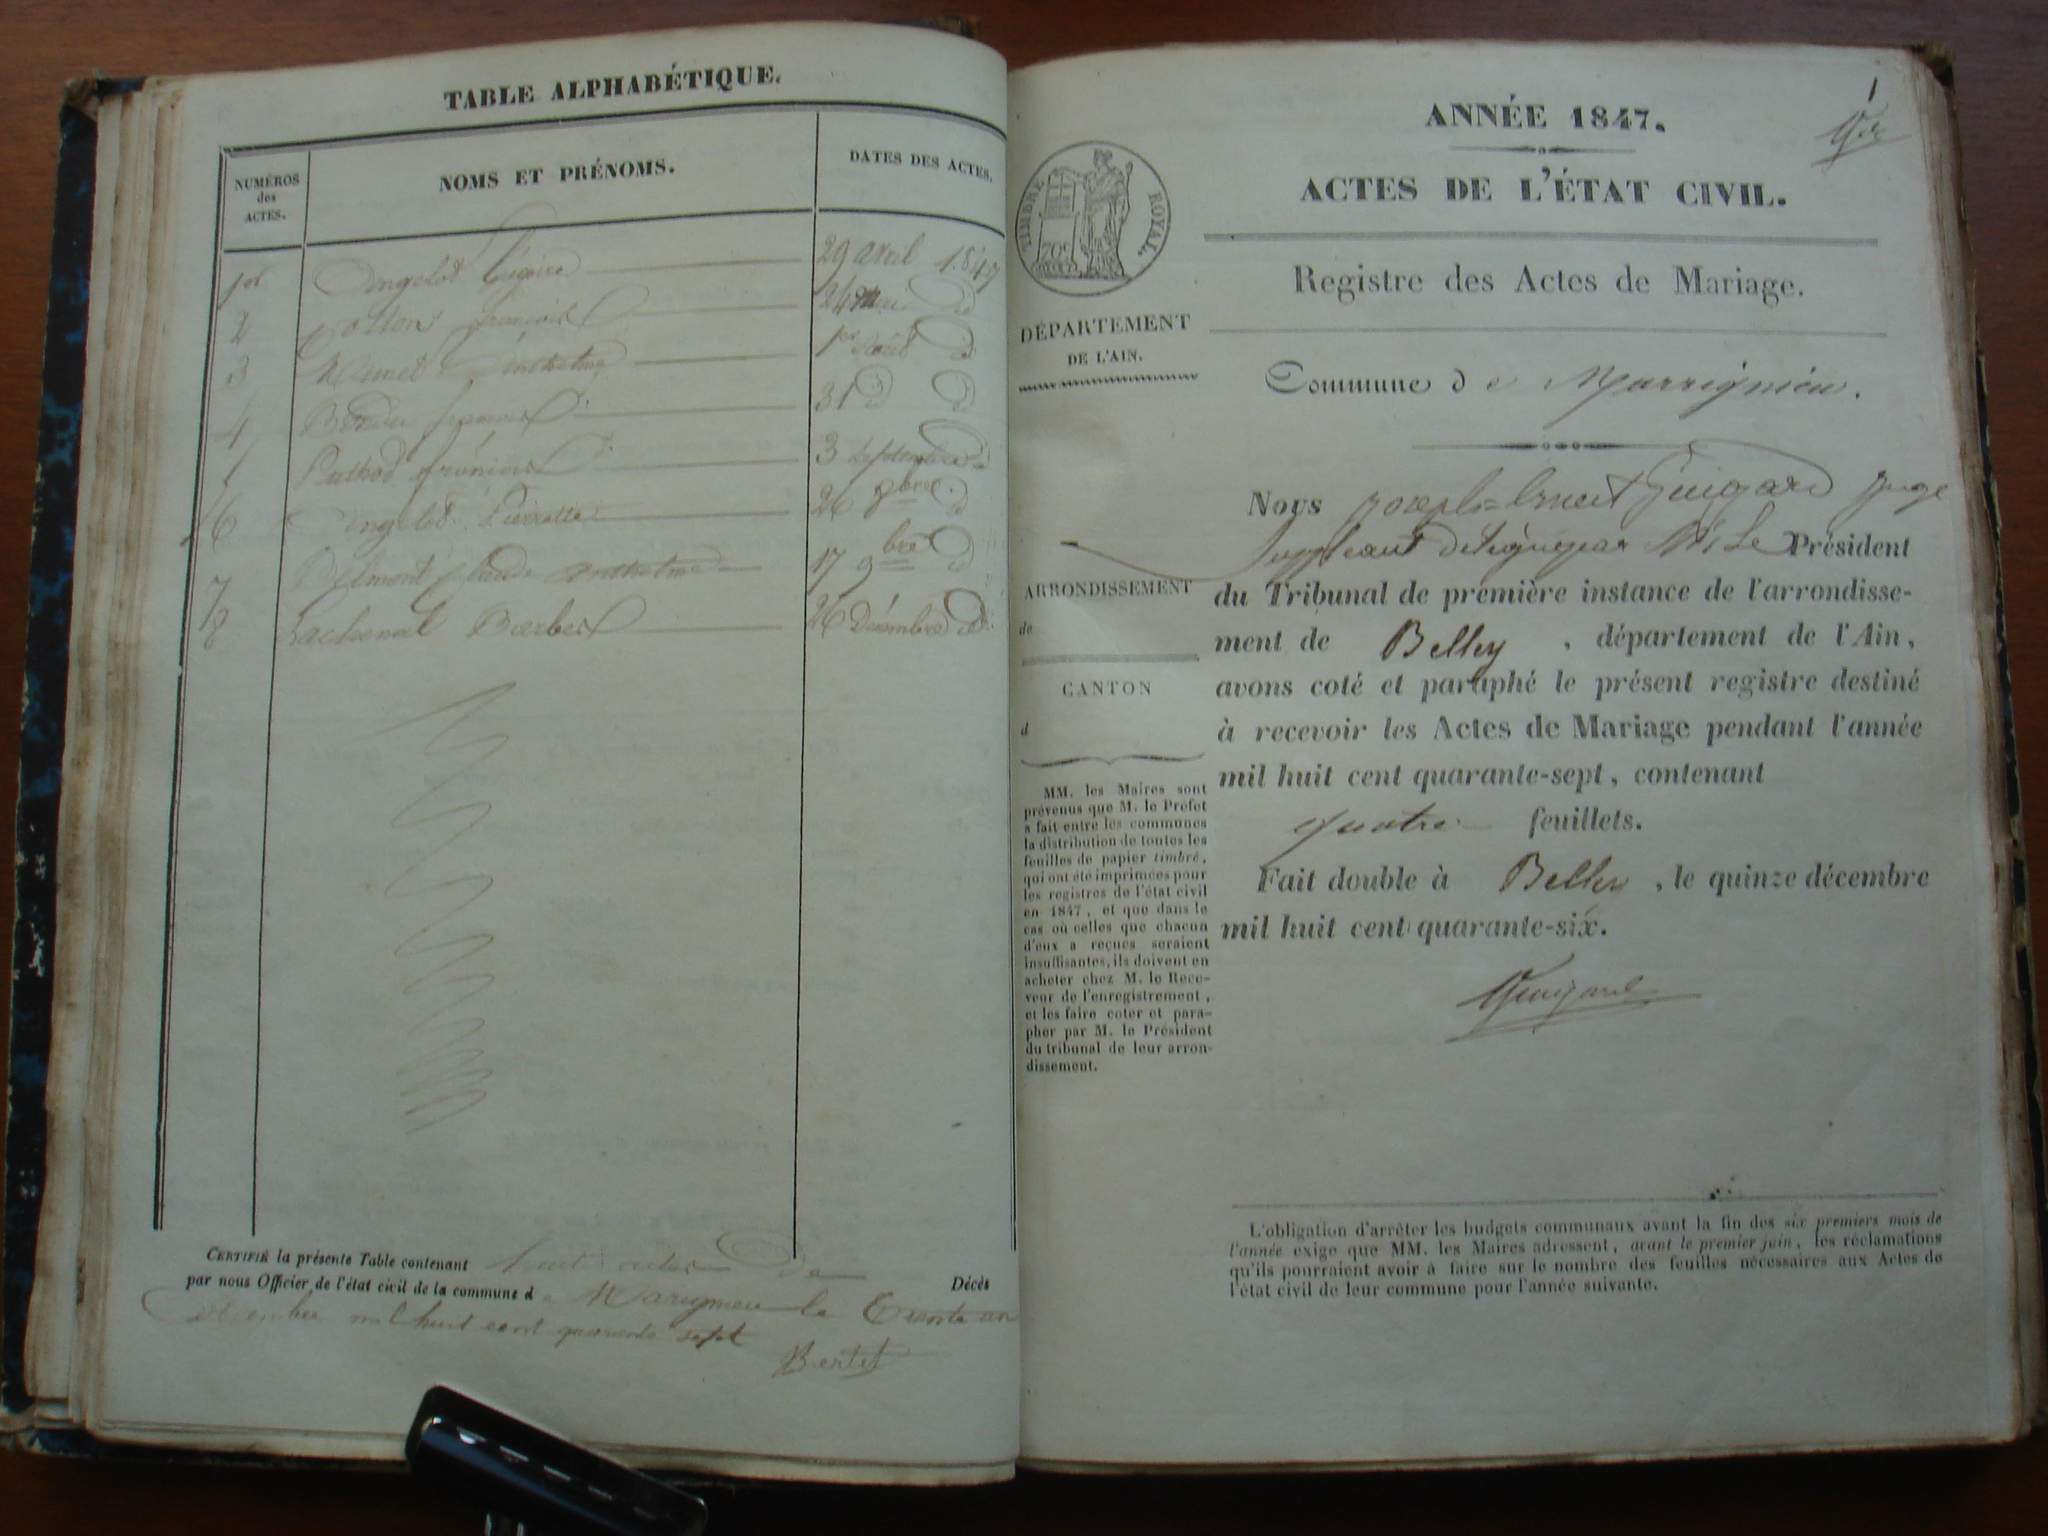 TABLE ALPHABÉTIQUE.
NUMÉROS
des
ACTES.
NOMS ET PRÉNOMS.
DATES DES ACTES.
1er 29 avril 1847
2 françois 24
3 Anthelme 1er Août d
4 françois 31 d d
3 Septembre d
6 Pierrette 26 8bre d
7 Belmont Claude Anthelme 17 9bre d
8 Lachenal Barbe 26 Décembre d
CERTIFIÉ la présente Table contenant huit actes de Décès
par nous Officier de l'état civil de la commune de Marignieu le trente un
Décembre mil huit cent quarante sept
Bertet
1
ANNÉE 1847.
ACTES DE L'ÉTAT CIVIL.
TIMBRE ROYAL.
70c
Registre des Actes de Mariage.
DÉPARTEMENT
DE L'AIN.
Commune de Marrignieu.
Nous Joseph-Ernest Guigard juge
Suppléant Mr Le Président
du Tribunal de première instance de l'arrondisse-
ment de Belley, département de l'Ain,
avons coté et paraphé le présent registre destiné
à recevoir les Actes de Mariage pendant l'année
mil huit cent quarante-sept, contenant
quatre feuillets.
Fait double à Belley, le quinze décembre
mil huit cent quarante-six.
Guigard
ARRONDISSEMENT
de
CANTON
d
MM. les Maires sont
prévenus que M. le Préfet
a fait entre les communes
la distribution de toutes les
feuilles de papier timbré,
qui ont été imprimées pour
les registres de l'état civil
en 1847, et que dans le
cas où celles que chacun
d'eux a reçues seraient
insuffisantes, ils doivent en
acheter chez M. le Rece-
veur de l'enregistrement,
et les faire coter et para-
pher par M. le Président
du tribunal de leur arron-
dissement.
L'obligation d'arrêter les budgets communaux avant la fin des six premiers mois de
l'année exige que MM. les Maires adressent, avant le premier juin, les réclamations
qu'ils pourraient avoir à faire sur le nombre des feuilles nécessaires aux Actes de
l'état civil de leur commune pour l'année suivante.